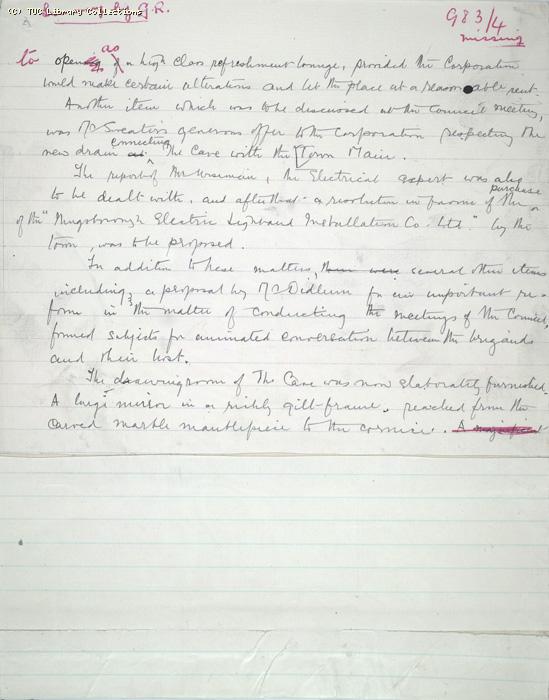 (C) TUC Library Collections
by G.R.
983/4
missing
as
to opening a high class refreshment lounge, provided the Corporation
would make certain alterations and let the place at a reasonable rent.
Another item which was to be discussed at the Council meeting,
was Mr Sweater's generous offer to the Corporation respecting the
connecting
new drain The Cave with the Town Main.
The report of Mr Wireman, the Electrical expert was also
purchase
to be dealt with, and afterthat a resolution in favour of the
of the "Mugsborough Electric Light and Installation Co. Ltd." by the
town, was to be proposed.
In addition to these matters, there were several other items
including a proposal by Mr Didlum for an important re-
form in the matter of conducting the meetings of the Council,
formed subjects for animated conversation between the brigands
and their host.
The drawingroom of The Cave was now elaborately furnished.
A large mirror in a richly gilt frame, reached from the
carved marble mantlepiece to the cornice. A magnificent